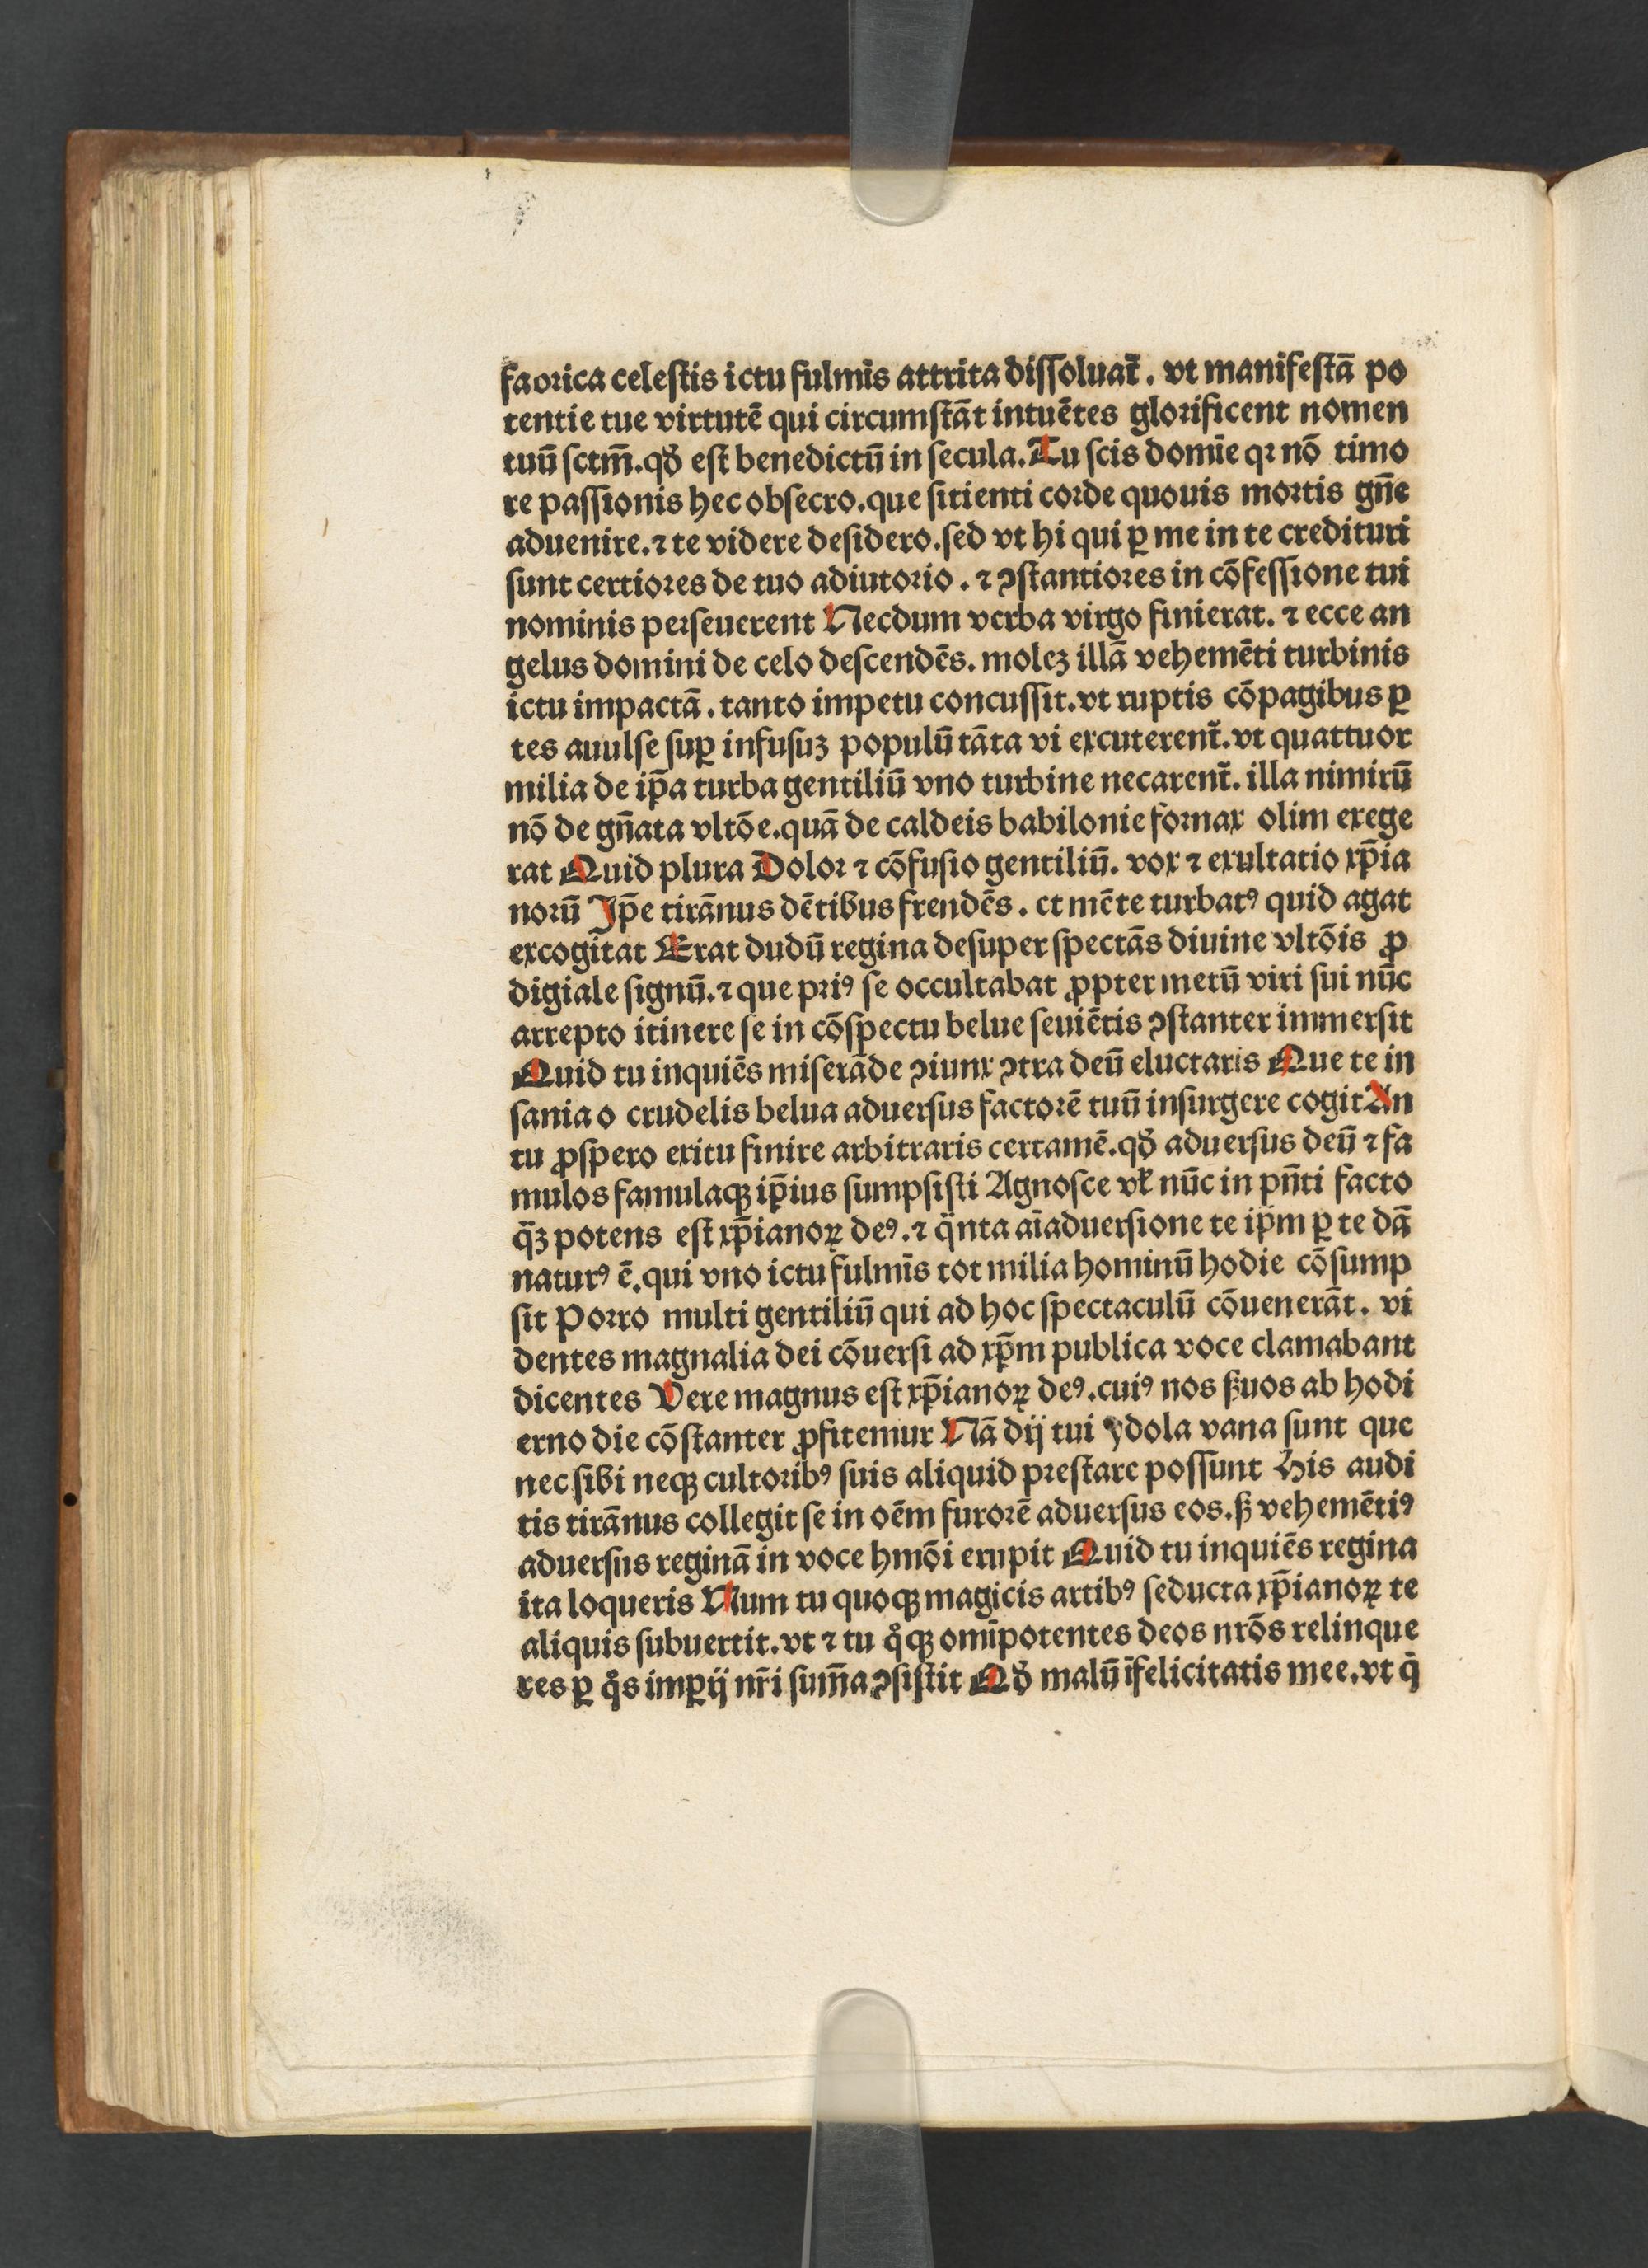 faorica celestis ictu fulmīs attrita dissoluat᷑. vt manifestā po
tentie tue virtutē qui circumstāt intuētes glorificent nomen
tuū sctm̄.qð est benedictū in secula.Tu scis domīe qꝛ nō timo
re passionis hec obsecro.que sitienti corde quouis mortis gn̄e
aduenire.⁊ te videre desidero.sed vt hi qui ꝑ me in te credituri
sunt certiores de tuo adiutorio. ⁊ ꝯstantiores in cōfessione tui
nominis perseuerent Necdum verba virgo finierat. ⁊ ecce an
gelus domini de celo descendēs. molez illā vehemēti turbinis
ictu impactā. tanto impetu concussit.vt ruptis cōpagibus ꝑ
tes auulse suꝑ infusuz populū tāta vi excuterent᷑.vt quattuor
milia de ip̄a turba gentiliū vno turbine necarent᷑. illa nimirū
nō de gn̄ata vltōe.quā de caldeis babilonie fornax olim exege
rat Quid plura Dolor ⁊ cōfusio gentiliū. vox ⁊ exultatio xp̄ia
norū Ip̄e tirānus dētibus frendēs. et mēte turbatꝰ quid agat
excogitat Erat dudū regina desuper spectās diuine vltōis ꝓ
digiale signū.⁊ que priꝰ se occultabat ꝓpter metū viri sui nūc
arrepto itinere se in cōspectu belue seuiētis ꝯstanter immersit
Quid tu inquiēs miserāde ꝯiunx ꝯtra deū eluctaris Que te in
sania o crudelis belua aduersus factorē tuū insurgere cogit An
tu ꝓspero exitu finire arbitraris certamē.qð aduersus deū ⁊ fa
mulos famulaqꝫ ip̄ius sumpsisti Agnosce vꝉ nūc in pn̄ti facto
q̈ꝫ potens est xp̄ianoꝝ deꝰ.⁊ q̈nta aīaduersione te ip̄m ꝑ te dā
naturꝰ ē.qui vno ictu fulmīs tot milia hominū hodie cōsump
sit Porro multi gentiliū qui ad hoc spectaculū cōuenerāt. vi
dentes magnalia dei cōuersi ad xp̄m publica voce clamabant
dicentes Vere magnus est xp̄ianoꝝ deꝰ.cuiꝰ nos ẜuos ab hodi
erno die cōstanter ꝓfitemur Nā dij tui ydola vana sunt que
nec sibi neqꝫ cultoribꝰ suis aliquid prestare possunt His audi
tis tirānus collegit se in oēm furorē aduersus eos.ẜ vehemētiꝰ
aduersus reginā in voce hmōi erupit Quid tu inquiēs regina
ita loqueris Num tu quoqꝫ magicis artibꝰ seducta xp̄ianoꝝ te
aliquis subuertit.vt ⁊ tu qͦqꝫ omīpotentes deos nrōs relinque
res ꝑ qͦs imꝑij nr̄i sum̄a ꝯsistit Qð malū īfelicitatis mee.vt qͥ